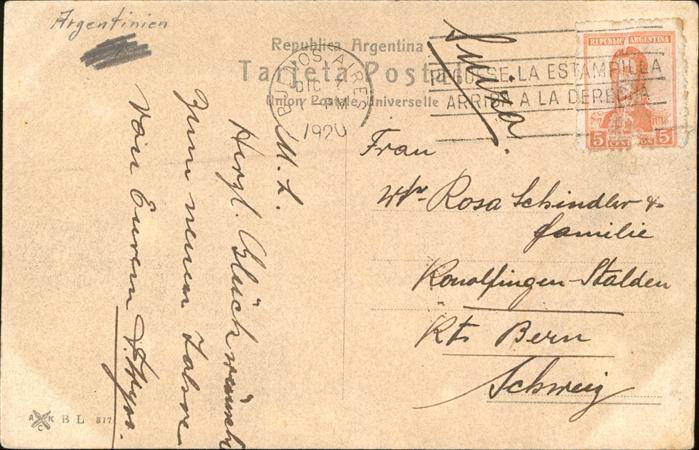 Argentinien
Republica Argentina
Tarjeta Postal
Union Postale Universelle
BUENOS AIRES
DIC
1920
PEGUESE LA ESTAMPILLA
ARRIBA A LA DERECHA
Suiza.
REPUBLICA ARGENTINA
5 CENTAVOS 5
M. L.
Herzl. Glückwünsche
Zum neuen Jahre
Von Eurem
Frau
Wwe Rosa Schindler &
familie
Konolfingen-Stalden
Kt. Bern
Schweiz
A K C B L 817